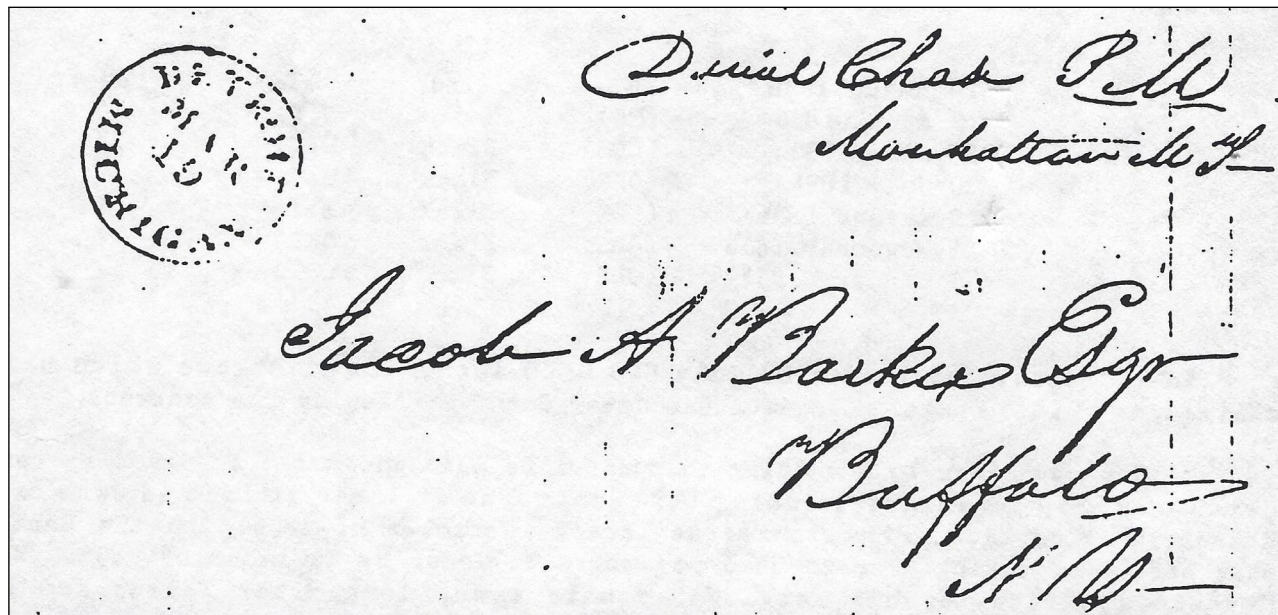 DETROIT MICHIGAN
MAR
19
Daniel Chase P.M
Manhattan M T
Jacob A Barker Esqr
Buffalo
N Y